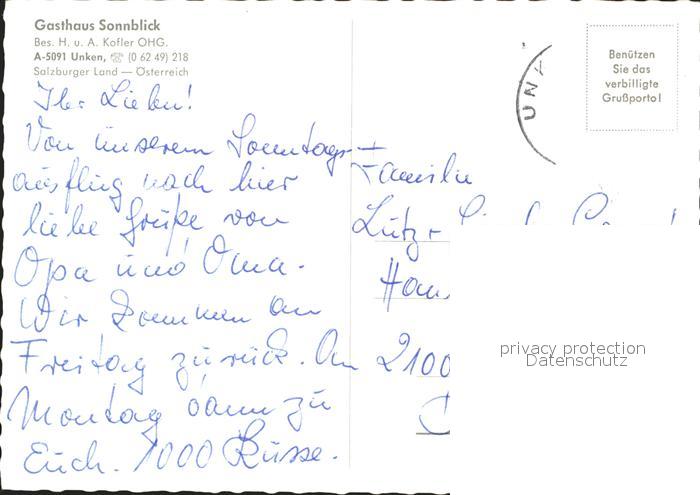 Gasthaus Sonnblick
Bes. H. u. A. Kofler OHG.
A-5091 Unken, ☏ (0 62 49) 218
Salzburger Land — Österreich
Ihr Lieben!
Von unserem Sonntags-
ausflug nach hier
liebe Grüße von
Opa und Oma.
Wir kommen am
Freitag zurück. Am
Montag dann zu
Euch. 1000 Küsse.
UNK
Benützen
Sie das
verbilligte
Grußporto!
Familie
Lutz +
2100
privacy protection
Datenschutz